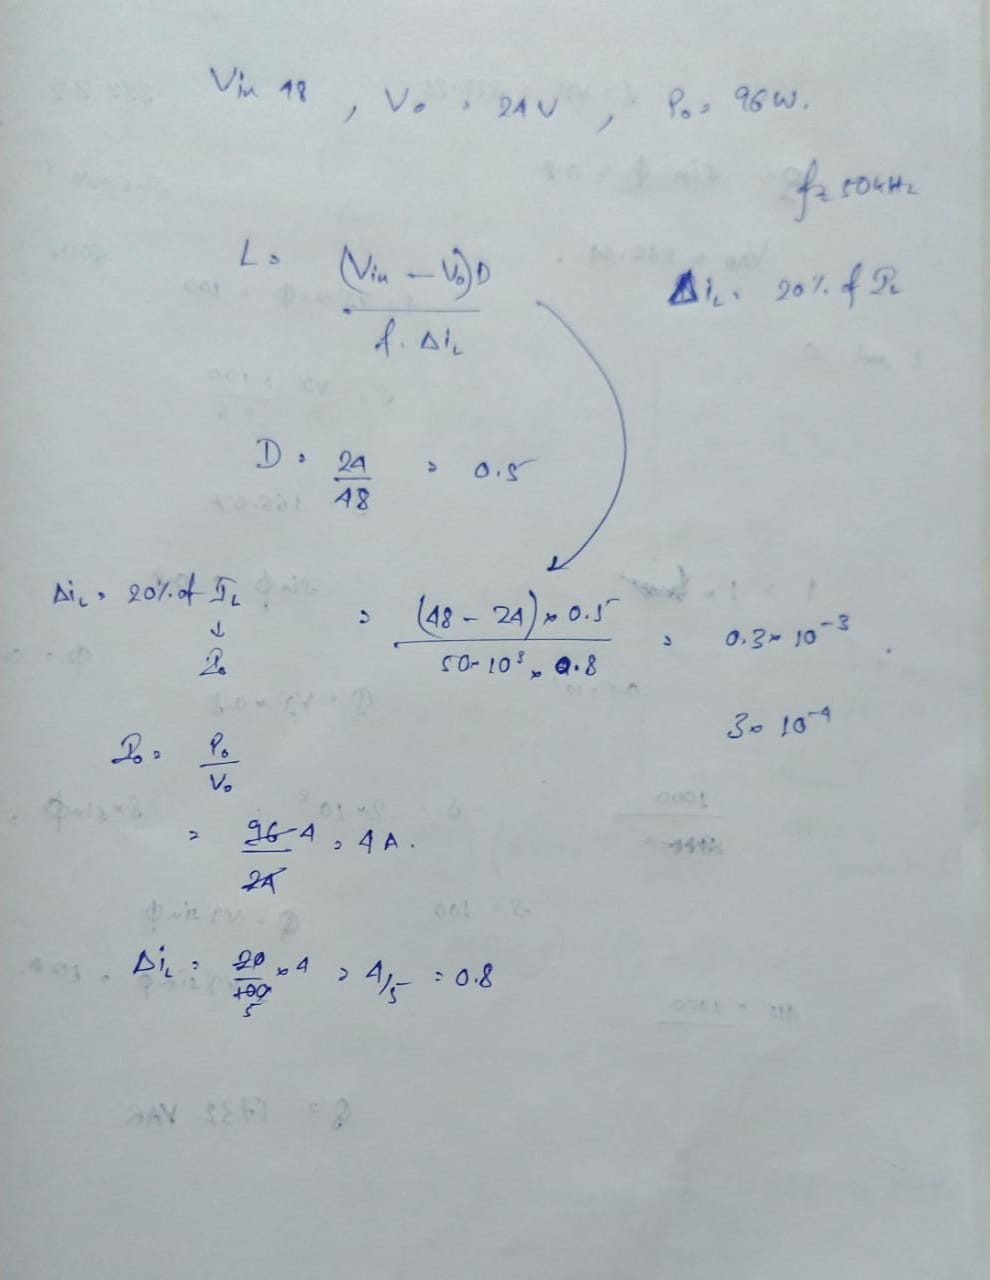 Vin 48 , Vo = 24V , Po = 96W.
f = 50kHz
L = (Vin - Vo)D / f. ΔiL
ΔiL = 20% of IL
D = 24/48 = 0.5
ΔiL = 20% of IL
↓
Io
= (48 - 24) × 0.5 / 50×10³ × 0.8 = 0.3×10⁻³.
3×10⁻⁴
Io = Po/Vo
= 96/24 4 = 4A.
ΔiL = 20/100 × 4 = 4/5 = 0.8
5